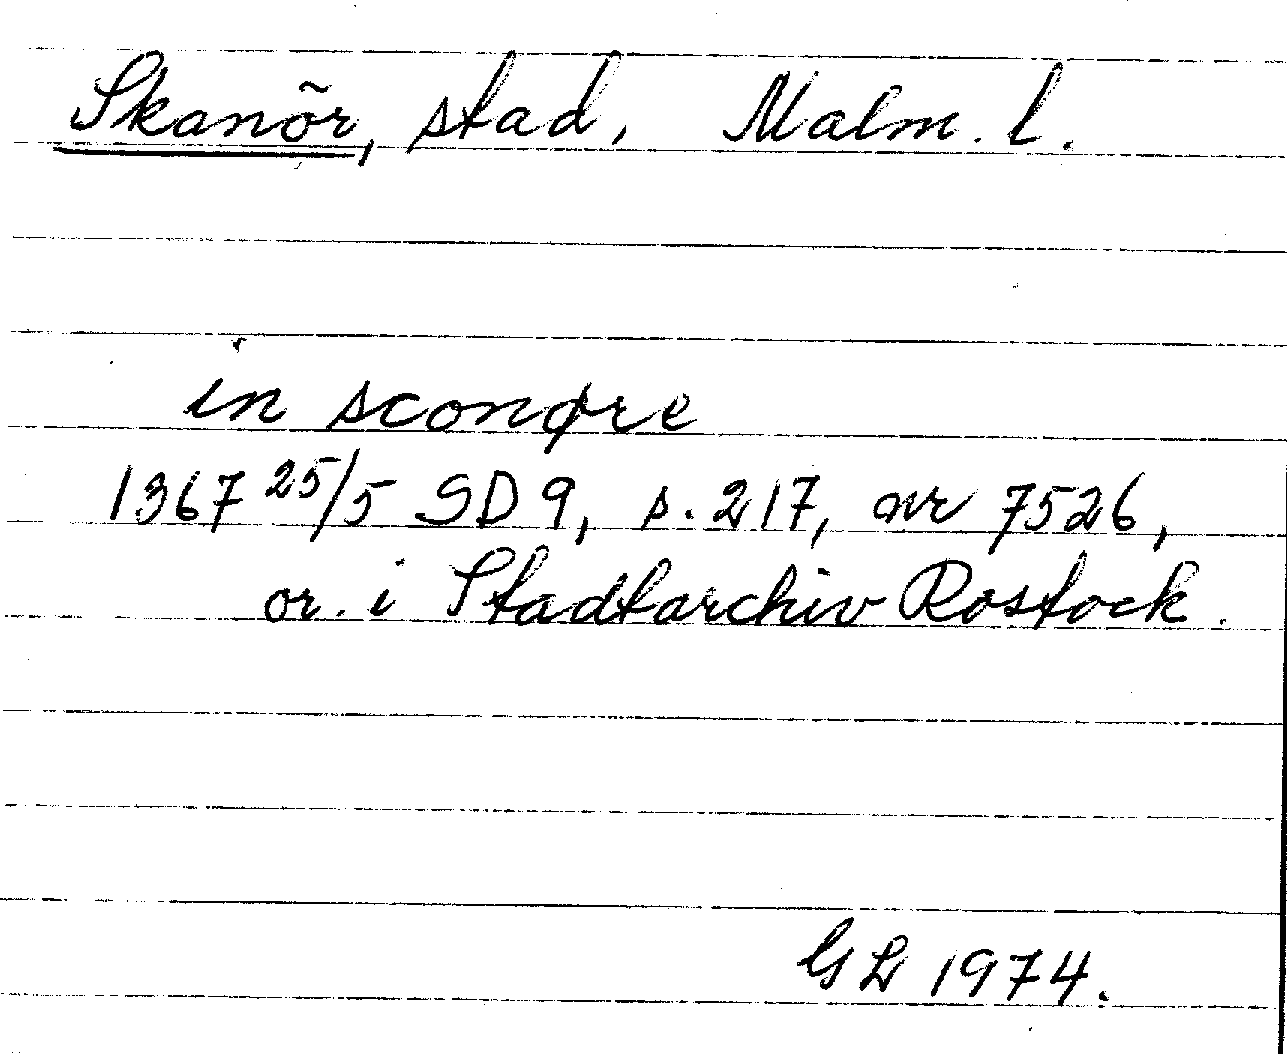 Skanör, stad, Malm. l.
in sconøre
1367 25/5 SD 9, s. 217, nr 7526,
or. i Stadtarchiv Rostock.
GL 1974.